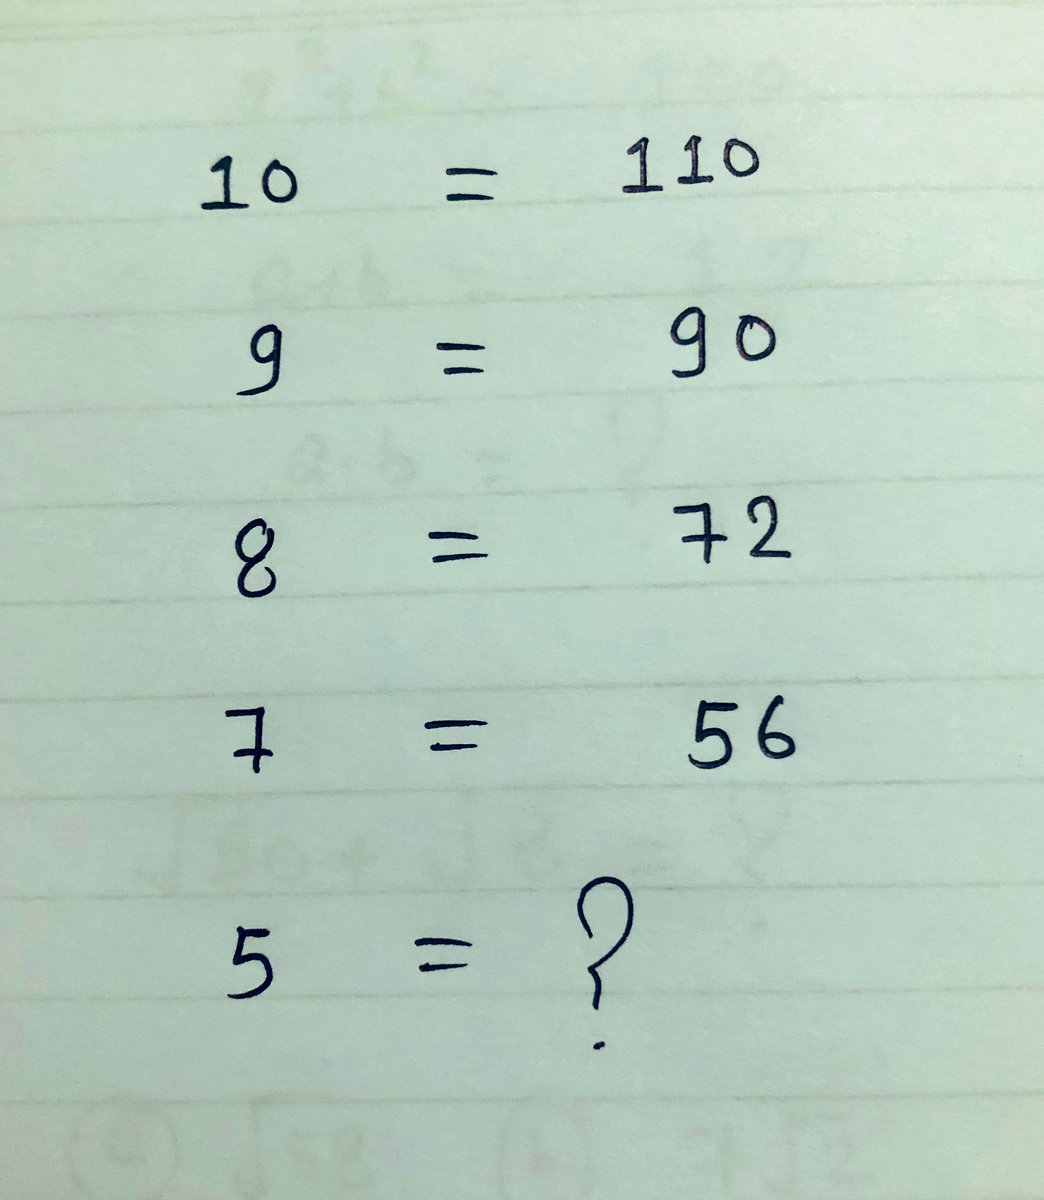 10 = 110
9 = 90
8 = 72
7 = 56
5 = ?